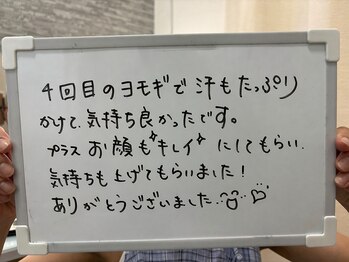 4回目のヨモギで汗もたっぷり
かけて、気持ち良かったです。
プラス お顔も"キレイ"にしてもらい、
気持ちも上げてもらいました!
ありがとうございました